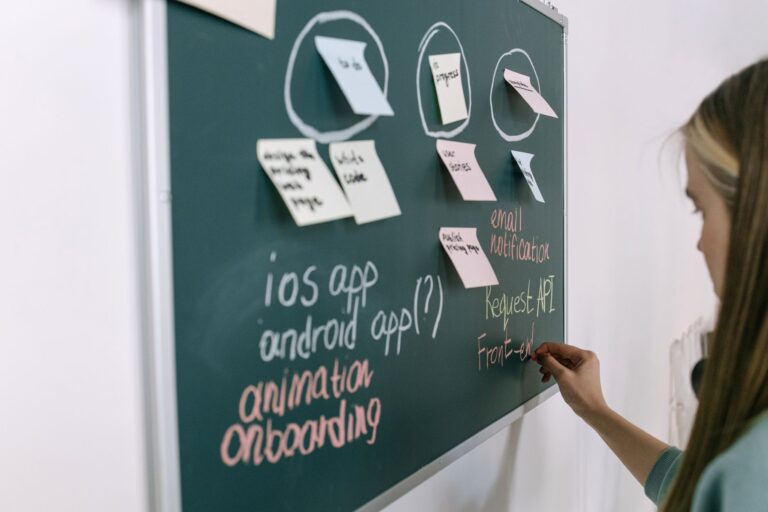 to do
in
progress
design the
pricing
web
page
write
code
user
stories
publish
pricing page
email
notification
ios app
android app(?)
Request API
animation
Front-en
onboarding